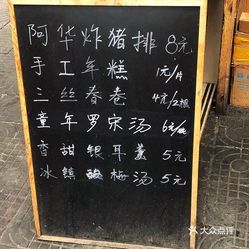 阿华炸猪排 8元
手工年糕 1元/片
三丝春卷 4元/2根
童年罗宋汤 6元/碗
香甜银耳羹 5元
冰镇酸梅汤 5元
大众点评